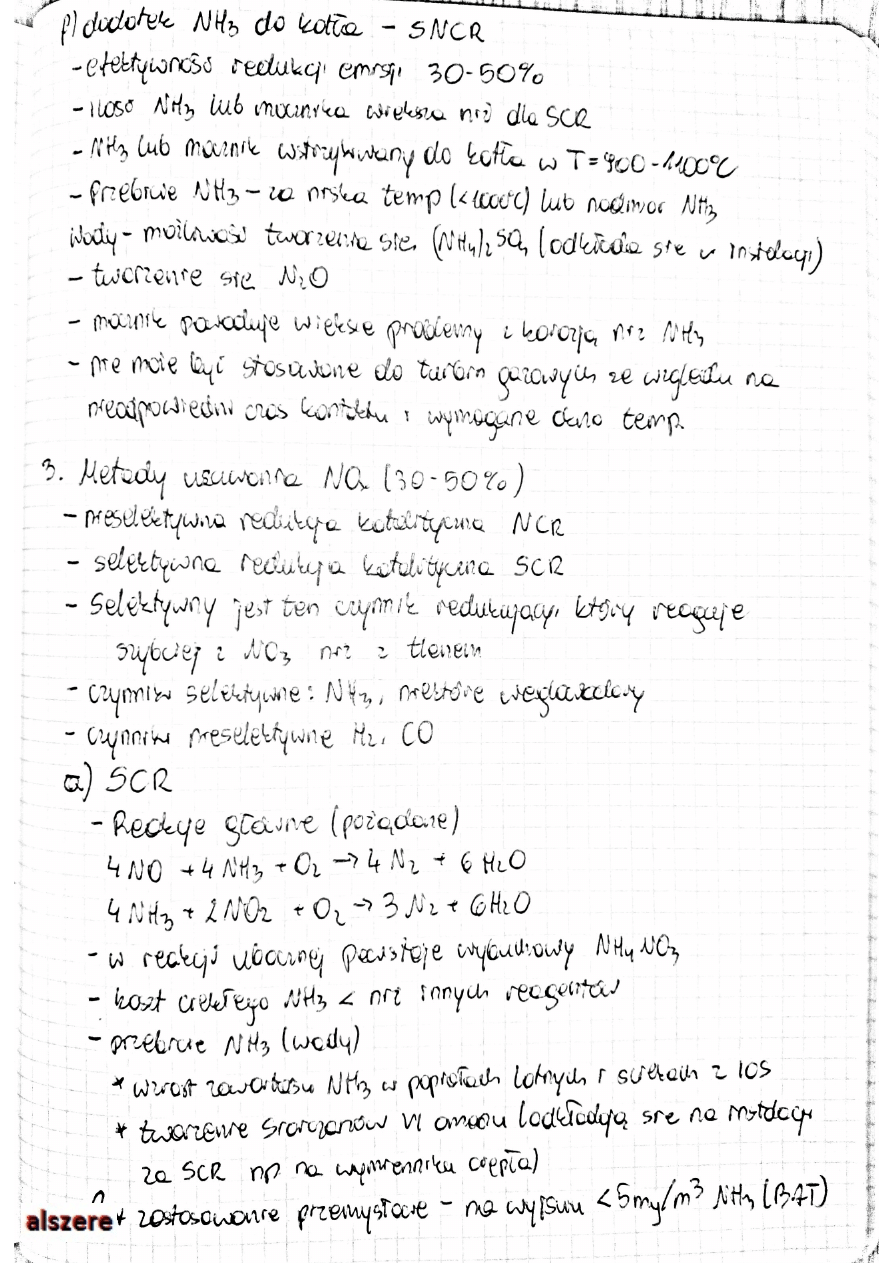 f) dodatek NH3 do kotła - SNCR
- efektywność redukcji emisji 30-50%
- ilość NH3 lub mocznika większa niż dla SCR
- NH3 lub mocznik wstrzykiwany do kotła w T=900-1100°C
- Przebicie NH3 - za niska temp (<1000°C) lub nadmiar NH3
Wady - możliwość tworzenia się (NH4)2SO4 (odkłada się w instalacji)
- tworzenie się N2O
- mocznik powoduje większe problemy z korozją niż NH3
- nie może być stosowane do turbin gazowych ze względu na
nieodpowiedni czas kontaktu i wymagane okno temp.
3. Metody usuwania NOx (30-50%)
- nieselektywna redukcja katalityczna NCR
- selektywna redukcja katalityczna SCR
- Selektywny jest ten czynnik redukujący, który reaguje
szybciej z NO3 niż z tlenem
- czynniki selektywne: NH3, niektóre węglowodory
- czynniki nieselektywne H2, CO
a) SCR
- Reakcje główne (pożądane)
4NO + 4NH3 + O2 → 4N2 + 6H2O
4NH3 + 2NO2 + O2 → 3N2 + 6H2O
- w reakcji ubocznej powstaje wybuchowy NH4NO3
- koszt ciekłego NH3 < niż innych reagentów
- przebicie NH3 (wady)
* wzrost zawartości NH3 w popiołach lotnych i ściekach z IOS
* tworzenie siarczanów VI amonu (odkładają się na instalacji
za SCR np na wymienniku ciepła)
* zastosowanie przemysłowe - na wylocie <5mg/m³ NH3 (BAT)
alszere